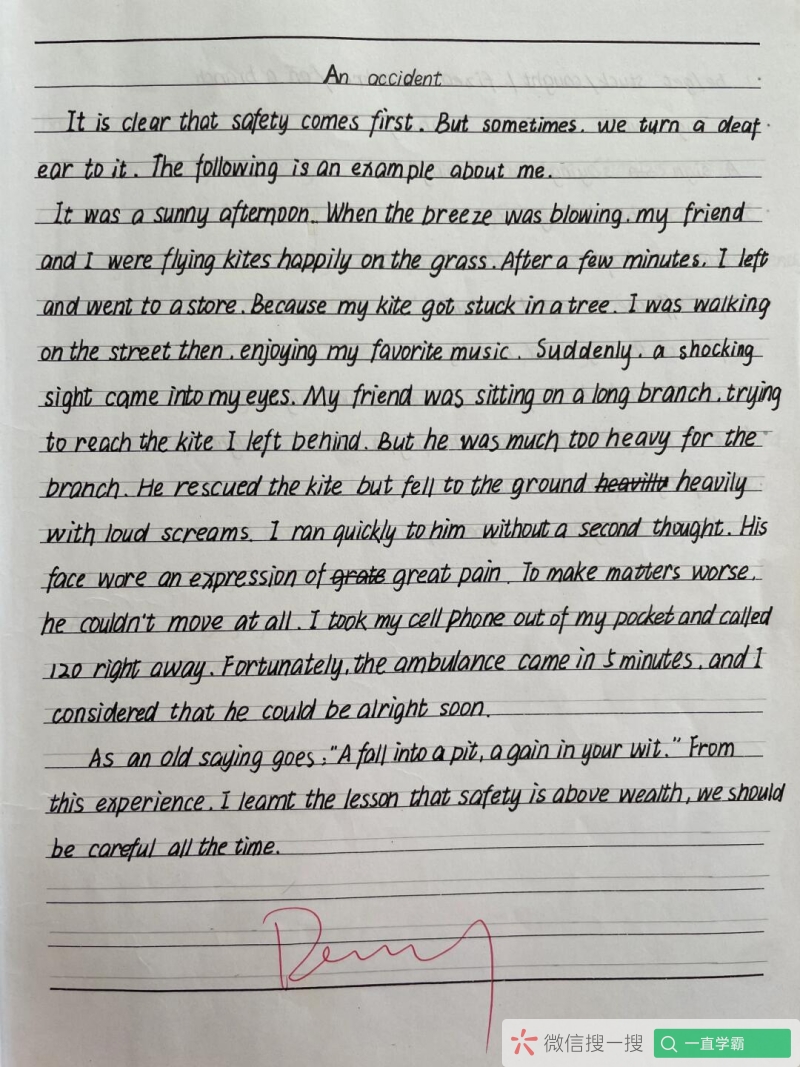 An accident
It is clear that safety comes first. But sometimes, we turn a deaf
ear to it. The following is an example about me.
It was a sunny afternoon. When the breeze was blowing, my friend
and I were flying kites happily on the grass. After a few minutes, I left
and went to a store. Because my kite got stuck in a tree. I was walking
on the street then, enjoying my favorite music. Suddenly, a shocking
sight came into my eyes. My friend was sitting on a long branch, trying
to reach the kite I left behind. But he was much too heavy for the
branch. He rescued the kite but fell to the ground heavilly heavily
with loud screams. I ran quickly to him without a second thought. His
face wore an expression of grate great pain. To make matters worse,
he couldn't move at all. I took my cell phone out of my pocket and called
120 right away. Fortunately, the ambulance came in 5 minutes, and I
considered that he could be alright soon.
As an old saying goes: "A fall into a pit, a gain in your wit." From
this experience, I learnt the lesson that safety is above wealth, we should
be careful all the time.
微信搜一搜
一直学霸